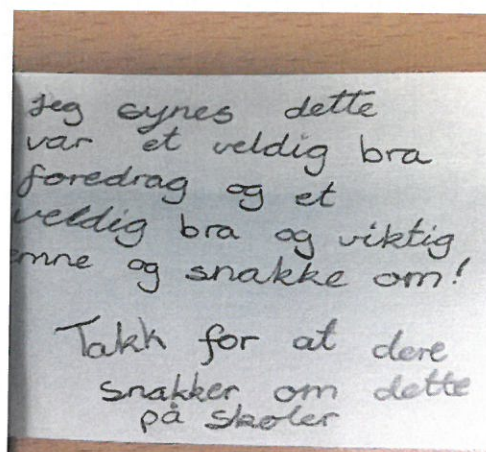 Jeg synes dette
var et veldig bra
foredrag og et
veldig bra og viktig
emne og snakke om!
Takk for at dere
snakker om dette
på skoler